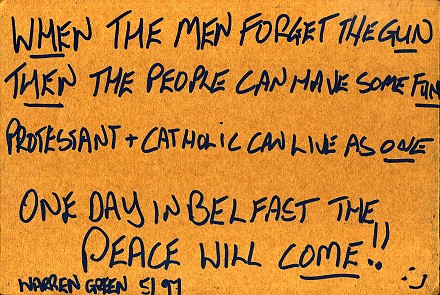 WHEN THE MEN FORGET THE GUN
THEN THE PEOPLE CAN HAVE SOME FUN
PROTESTANT + CATHOLIC CAN LIVE AS ONE
ONE DAY IN BELFAST THE
PEACE WILL COME!!
WARREN GREEN 5/97 :)